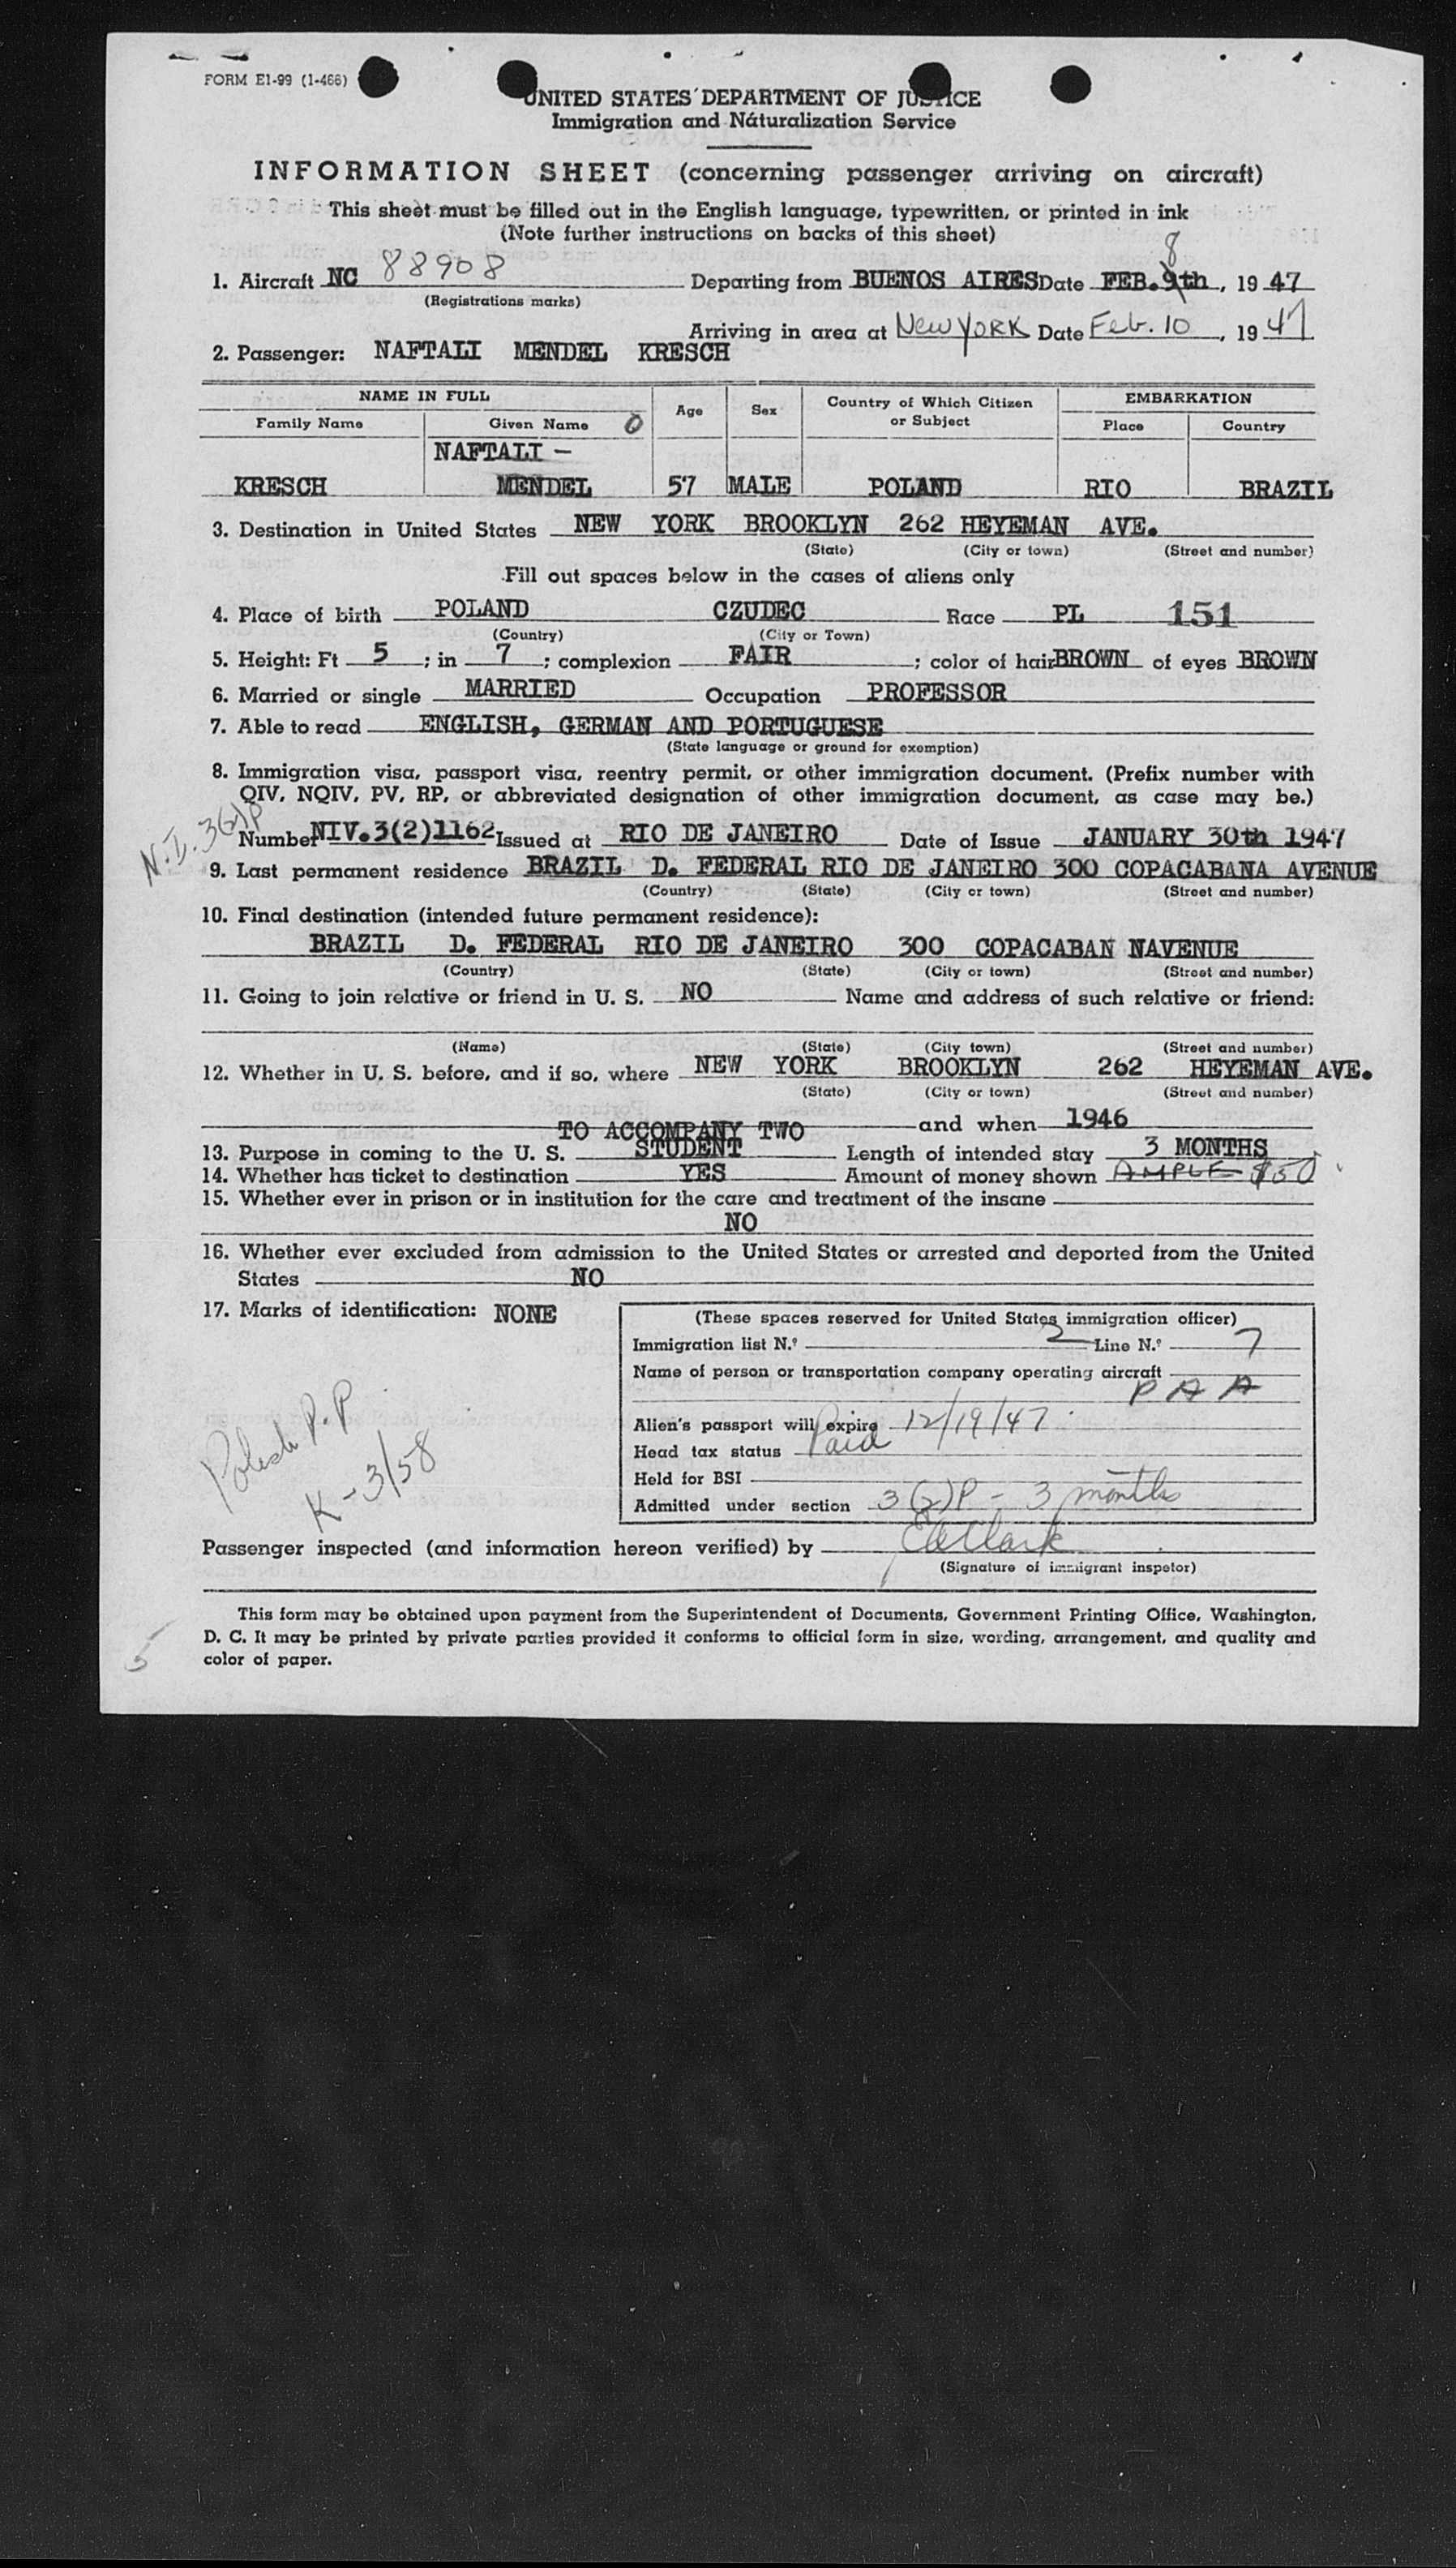 FORM E1-99 (1-466)
UNITED STATES DEPARTMENT OF JUSTICE
Immigration and Naturalization Service
INFORMATION SHEET (concerning passenger arriving on aircraft)
This sheet must be filled out in the English language, typewritten, or printed in ink
(Note further instructions on backs of this sheet)
8
1. Aircraft NC 88908 Departing from BUENOS AIRES Date FEB. 9th, 19 47
(Registrations marks)
Arriving in area at New YORK Date Feb. 10, 19 47
2. Passenger: NAFTALI MENDEL KRESCH
NAME IN FULL Age Sex Country of Which Citizen or Subject EMBARKATION
Family Name Given Name Place Country
NAFTALI -
KRESCH MENDEL 57 MALE POLAND RIO BRAZIL
3. Destination in United States NEW YORK BROOKLYN 262 HEYEMAN AVE.
(State) (City or town) (Street and number)
Fill out spaces below in the cases of aliens only
4. Place of birth POLAND CZUDEC Race PL 151
(Country) (City or Town)
5. Height: Ft 5 ; in 7 ; complexion FAIR ; color of hair BROWN of eyes BROWN
6. Married or single MARRIED Occupation PROFESSOR
7. Able to read ENGLISH, GERMAN AND PORTUGUESE
(State language or ground for exemption)
8. Immigration visa, passport visa, reentry permit, or other immigration document. (Prefix number with
QIV, NQIV, PV, RP, or abbreviated designation of other immigration document, as case may be.)
N.I. 3(2)P
Number NIV.3(2)1162 Issued at RIO DE JANEIRO Date of Issue JANUARY 30th 1947
9. Last permanent residence BRAZIL D. FEDERAL RIO DE JANEIRO 300 COPACABANA AVENUE
(Country) (State) (City or town) (Street and number)
10. Final destination (intended future permanent residence):
BRAZIL D. FEDERAL RIO DE JANEIRO 300 COPACABAN NAVENUE
(Country) (State) (City or town) (Street and number)
11. Going to join relative or friend in U. S. NO Name and address of such relative or friend:
(Name) (State) (City town) (Street and number)
12. Whether in U. S. before, and if so, where NEW YORK BROOKLYN 262 HEYEMAN AVE.
(State) (City or town) (Street and number)
and when 1946
TO ACCOMPANY TWO
13. Purpose in coming to the U. S. STUDENT Length of intended stay 3 MONTHS
14. Whether has ticket to destination YES Amount of money shown AMPLE $50
15. Whether ever in prison or in institution for the care and treatment of the insane
NO
16. Whether ever excluded from admission to the United States or arrested and deported from the United
States NO
17. Marks of identification: NONE
(These spaces reserved for United States immigration officer)
Immigration list N.º 2 Line N.º 7
Name of person or transportation company operating aircraft
P A A
Alien's passport will expire 12/19/47
Head tax status Paid
Held for BSI
Admitted under section 3(2)P - 3 months
Polish P.P
K-3/58
Passenger inspected (and information hereon verified) by EClark
(Signature of immigrant inspetor)
This form may be obtained upon payment from the Superintendent of Documents, Government Printing Office, Washington,
D. C. It may be printed by private parties provided it conforms to official form in size, wording, arrangement, and quality and
color of paper.
5